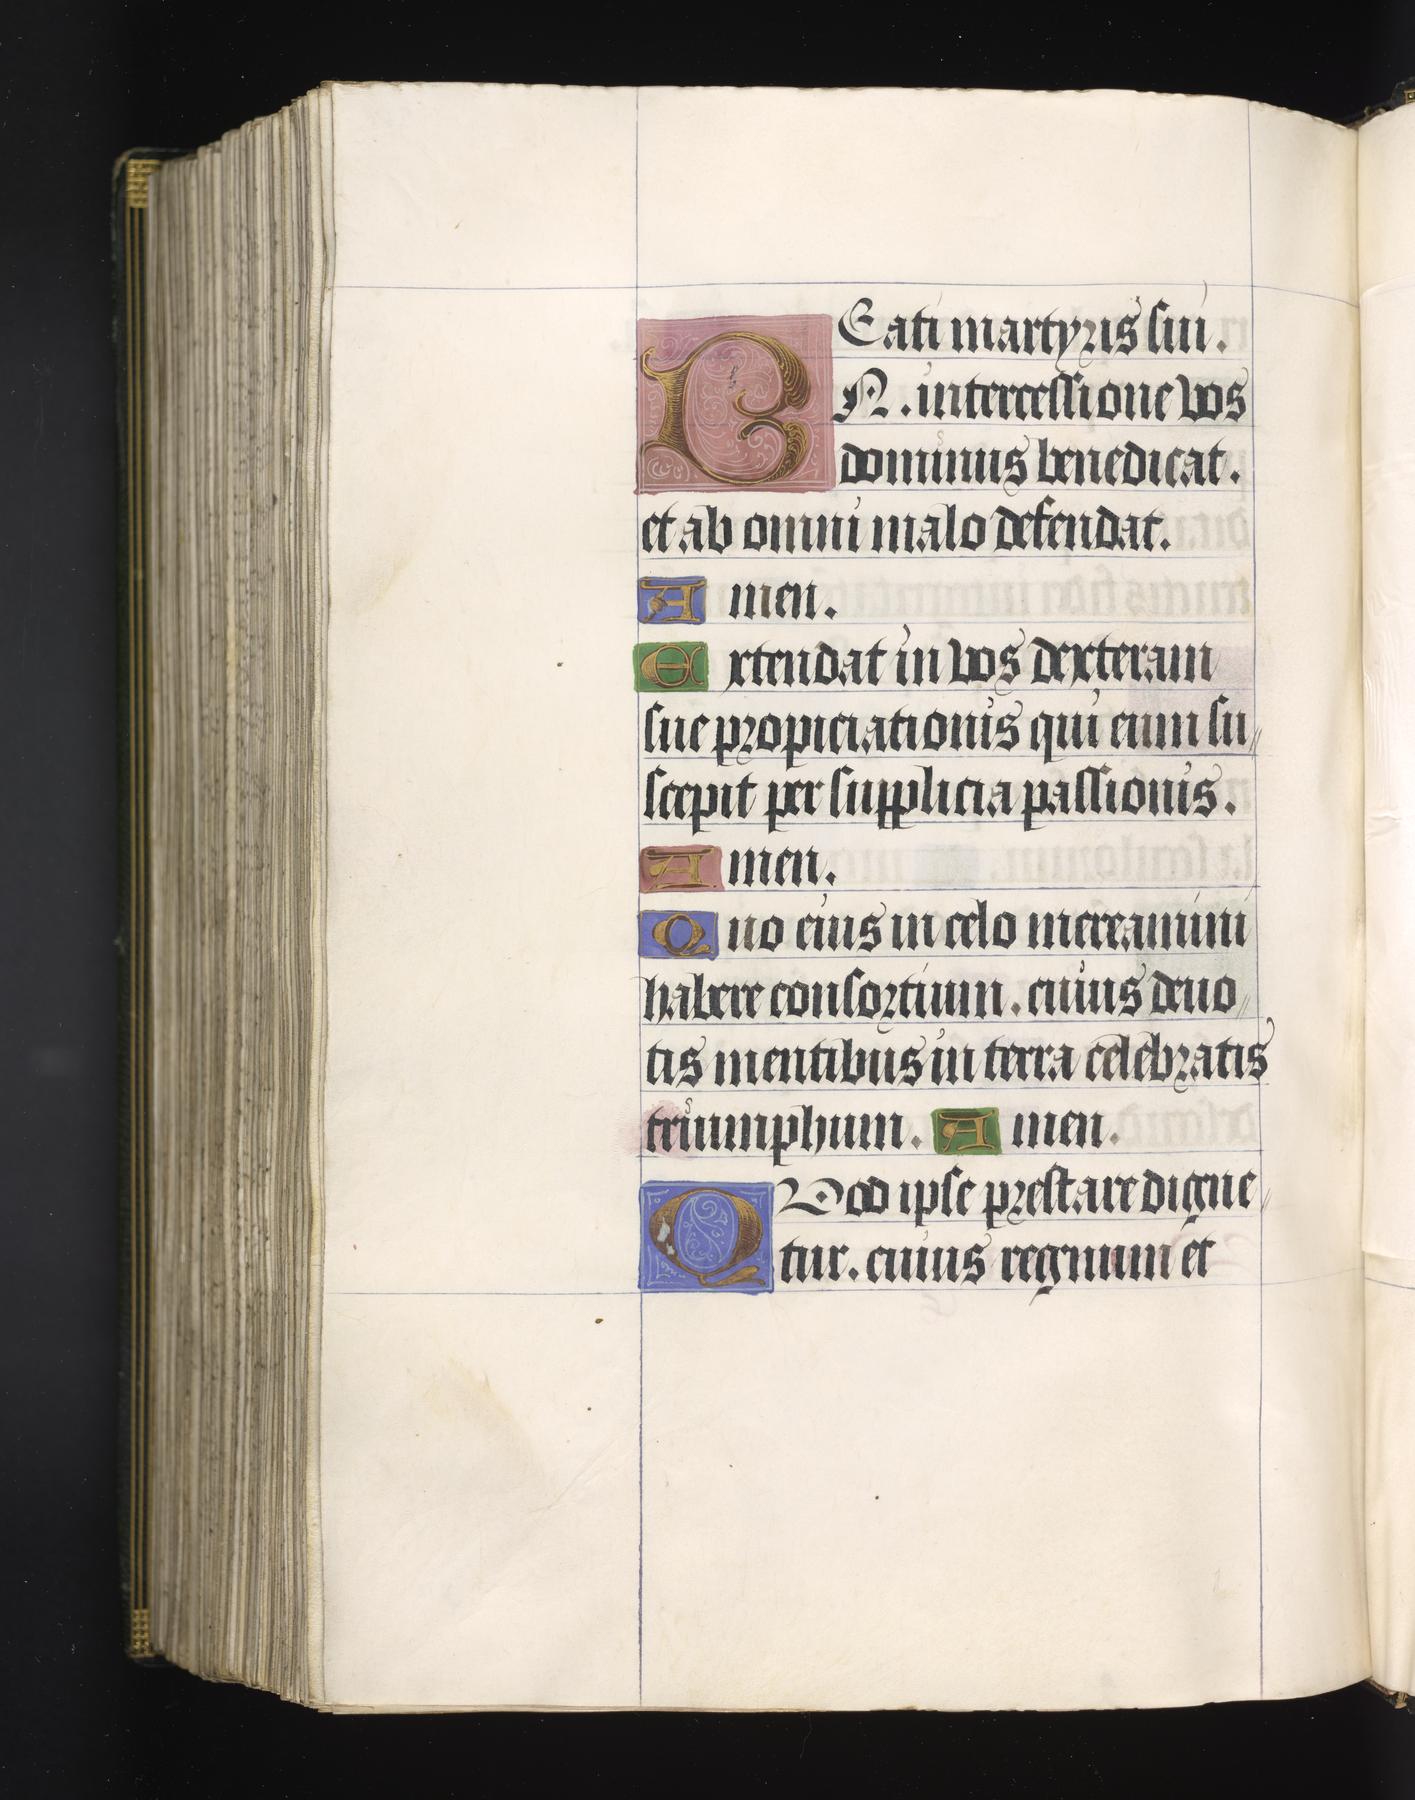 BEati martyris sui.
N. intercessione vos
dominus benedicat.
et ab omni malo defendat.
Amen.
Extendat in vos dexteram
sue propiciationis qui eum su
scepit per supplicia passionis.
Amen.
Quo eius in celo mereamini
habere consortium. cuius deuo
tis mentibus in terra celebratis
triumphum. Amen.
QVod ipse prestare digne
tur. cuius regnum et